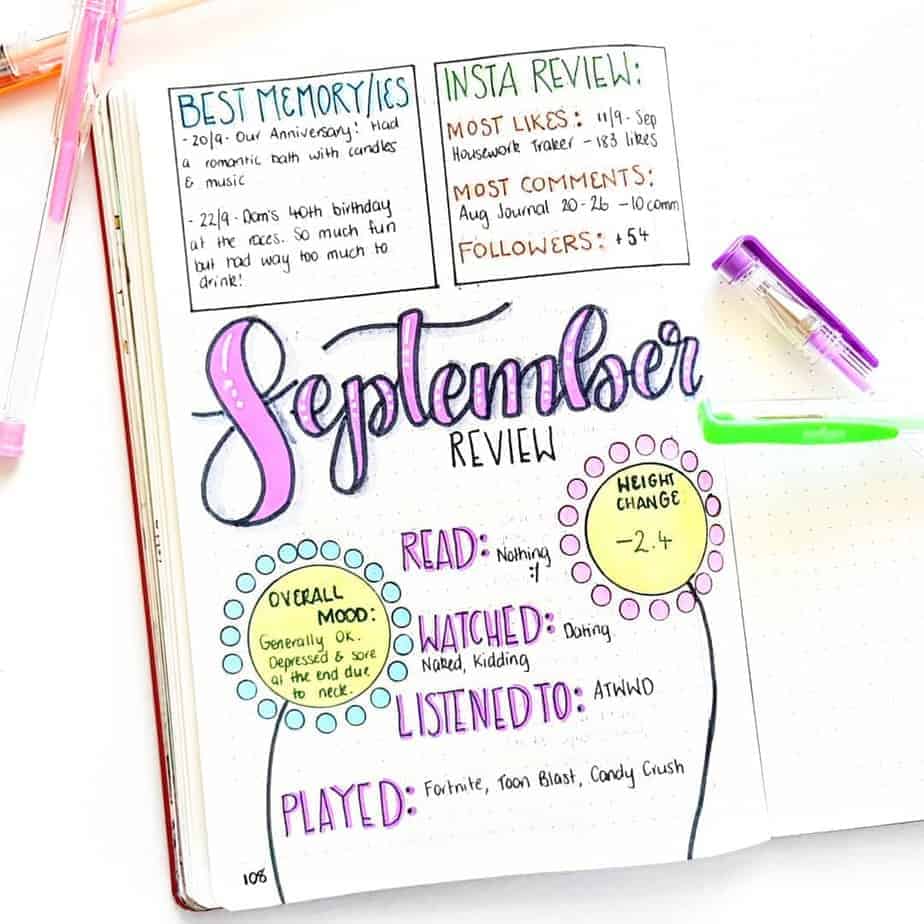 BEST MEMORY/IES
- 20/9 - Our Anniversary! Had
a romantic bath with candles
& music
- 22/9 - Dom's 40th birthday
at the races. So much fun
but had way too much to
drink!
INSTA REVIEW:
MOST LIKES: 11/9 - Sep
Housework Traker - 183 likes
MOST COMMENTS:
Aug Journal 20-26 - 10 comm
FOLLOWERS: +54
September
REVIEW
WEIGHT
CHANGE
-2.4
READ: Nothing
:/
OVERALL
MOOD:
Generally OK.
Depressed & sore
at the end due
to neck.
WATCHED: Dating
Naked, Kidding
LISTENED TO: ATWWD
PLAYED: Fortnite, Toon Blast, Candy Crush
108